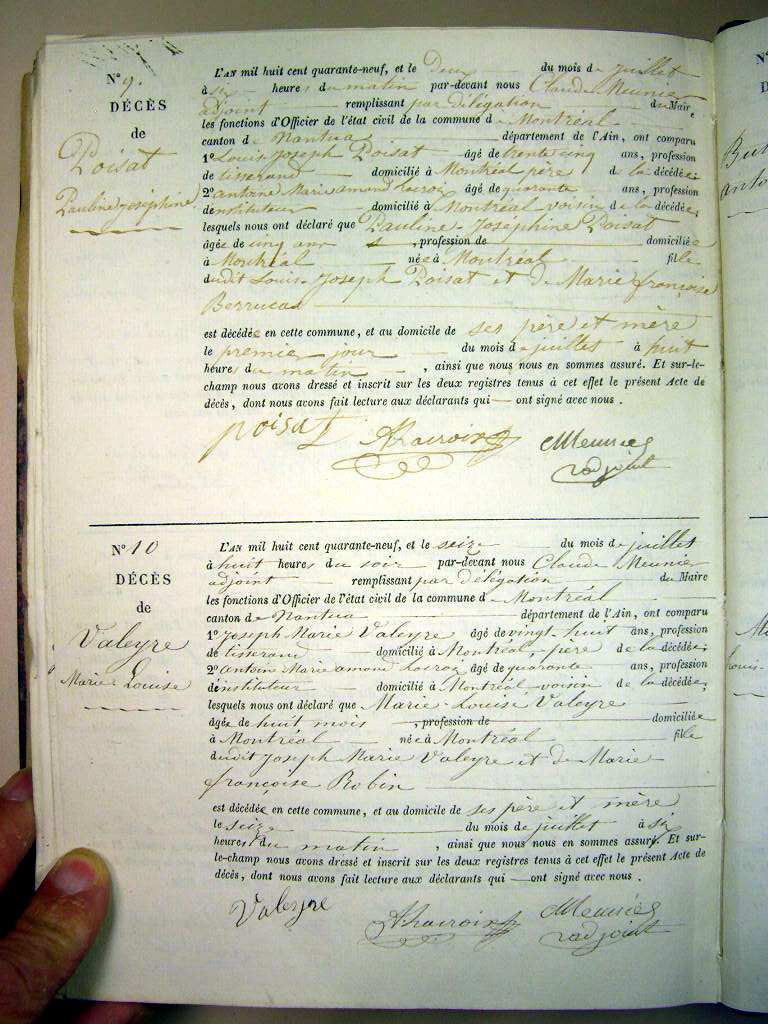 N° 9.
DÉCÈS
de
Poisat
Pauline Joséphine
L'AN mil huit cent quarante-neuf, et le Deux du mois de juillet
à six heures du matin par-devant nous Claude Meunier
adjoint remplissant par délégation du Maire
les fonctions d'Officier de l'état civil de la commune de Montréal
canton de Nantua département de l'Ain, ont comparu
1° Louis Joseph Poisat âgé de trente cinq ans, profession
de tisserand domicilié à Montréal père de la décédée
2° antoine Marie amand âgé de quarante ans, profession
d'instituteur domicilié à Montréal voisin de la décédée,
lesquels nous ont déclaré que Pauline-Joséphine Poisat
âgée de cinq ans, profession de domiciliée
à Montréal née à Montréal fille
dudit Louis-Joseph Poisat et de Marie françoise
est décédée en cette commune, et au domicile de ses père et mère
le premier jour du mois de juillet à huit
heures du matin, ainsi que nous nous en sommes assuré. Et sur-le-
champ nous avons dressé et inscrit sur les deux registres tenus à cet effet le présent Acte de
décès, dont nous avons fait lecture aux déclarants qui ont signé avec nous.
poisat CMeunier
adjoint
N° 10
DÉCÈS
de
Valeyre
Marie-Louise
L'AN mil huit cent quarante-neuf, et le seize du mois de juillet
à huit heures du soir par-devant nous Claude Meunier
adjoint remplissant par délégation du Maire
les fonctions d'Officier de l'état civil de la commune de Montréal
canton de Nantua département de l'Ain, ont comparu
1° Joseph Marie Valeyre âgé de vingt-huit ans, profession
de tisserand domicilié à Montréal, père de la décédée;
2° antoine Marie amand âgé de quarante ans, profession
d'instituteur domicilié à Montréal voisin de la décédée,
lesquels nous ont déclaré que Marie-Louise Valeyre
âgée de huit mois, profession de domiciliée
à Montréal née à Montréal fille
dudit Joseph Marie Valeyre et de Marie
françoise Robin
est décédée en cette commune, et au domicile de ses père et mère
le seize du mois de juillet à six
heures du matin, ainsi que nous nous en sommes assuré. Et sur-
le-champ nous avons dressé et inscrit sur les deux registres tenus à cet effet le présent Acte de
décès, dont nous avons fait lecture aux déclarants qui ont signé avec nous.
Valeyre CMeunier
adjoint